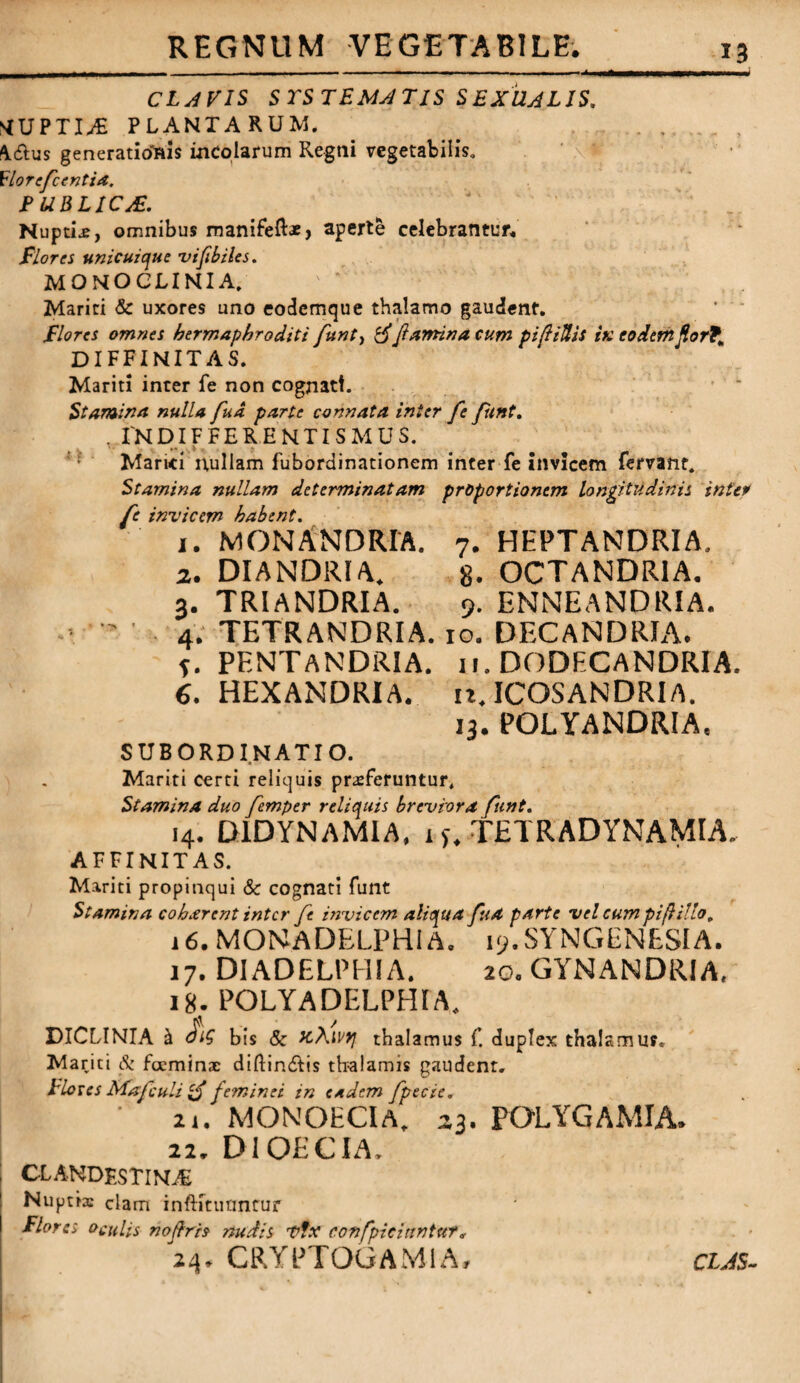 REGNUM VEGETABILE. 13
CLAVIS SYSTEMATIS SEXUALIS.
NUPTIÆ PLANTARUM.
Actus generationis incolarum Regni vegetabilis.
Florescentia.
PUBLICÆ.
Nuptiæ, omnibus manifestæ, apertè celebrantur.
Flores unicuique visibiles.
MONOCLINIA.
Mariti & uxores uno eodemque thalamo gaudent.
Flores omnes hermaphroditi sunt, & stamina cum pistillis in eodem flore.
DIFFINITAS.
Mariti inter se non cognati.
Stamina nulla suâ parte connata inter se sunt.
INDIFFERENTISMUS.
Mariti nullam subordinationem inter se invicem servant.
Stamina nullam determinatam proportionem longitudinis inter
se invicem habent.
1. MONANDRIA. 7. HEPTANDRIA.
2. DIANDRIA. 8. OCTANDRIA.
3. TRIANDRIA. 9. ENNEANDRIA.
4. TETRANDRIA. 10. DECANDRIA.
5. PENTANDRIA. 11. DODECANDRIA.
6. HEXANDRIA. 12. ICOSANDRIA.
13. POLYANDRIA.
SUBORDINATIO.
Mariti certi reliquis præferuntur.
Stamina duo semper reliquis breviora sunt.
14. DIDYNAMIA. 15. TETRADYNAMIA.
AFFINITAS.
Mariti propinqui & cognati sunt
Stamina cohærent inter se invicem aliqua suâ parte vel cum pistillo.
16. MONADELPHIA. 19. SYNGENESIA.
17. DIADELPHIA. 20. GYNANDRIA.
18. POLYADELPHIA.
DICLINIA à δὶς bis & κλίνη thalamus s. duplex thalamus.
Mariti & fœminæ distinctis thalamis gaudent.
Flores Masculi & feminei in eadem specie.
21. MONOECIA. 23. POLYGAMIA.
22. DIOECIA.
CLANDESTINÆ
Nuptiæ clam instituuntur
Flores oculis nostris nudis vix conspiciuntur.
24. CRYPTOGAMIA. CLAS-